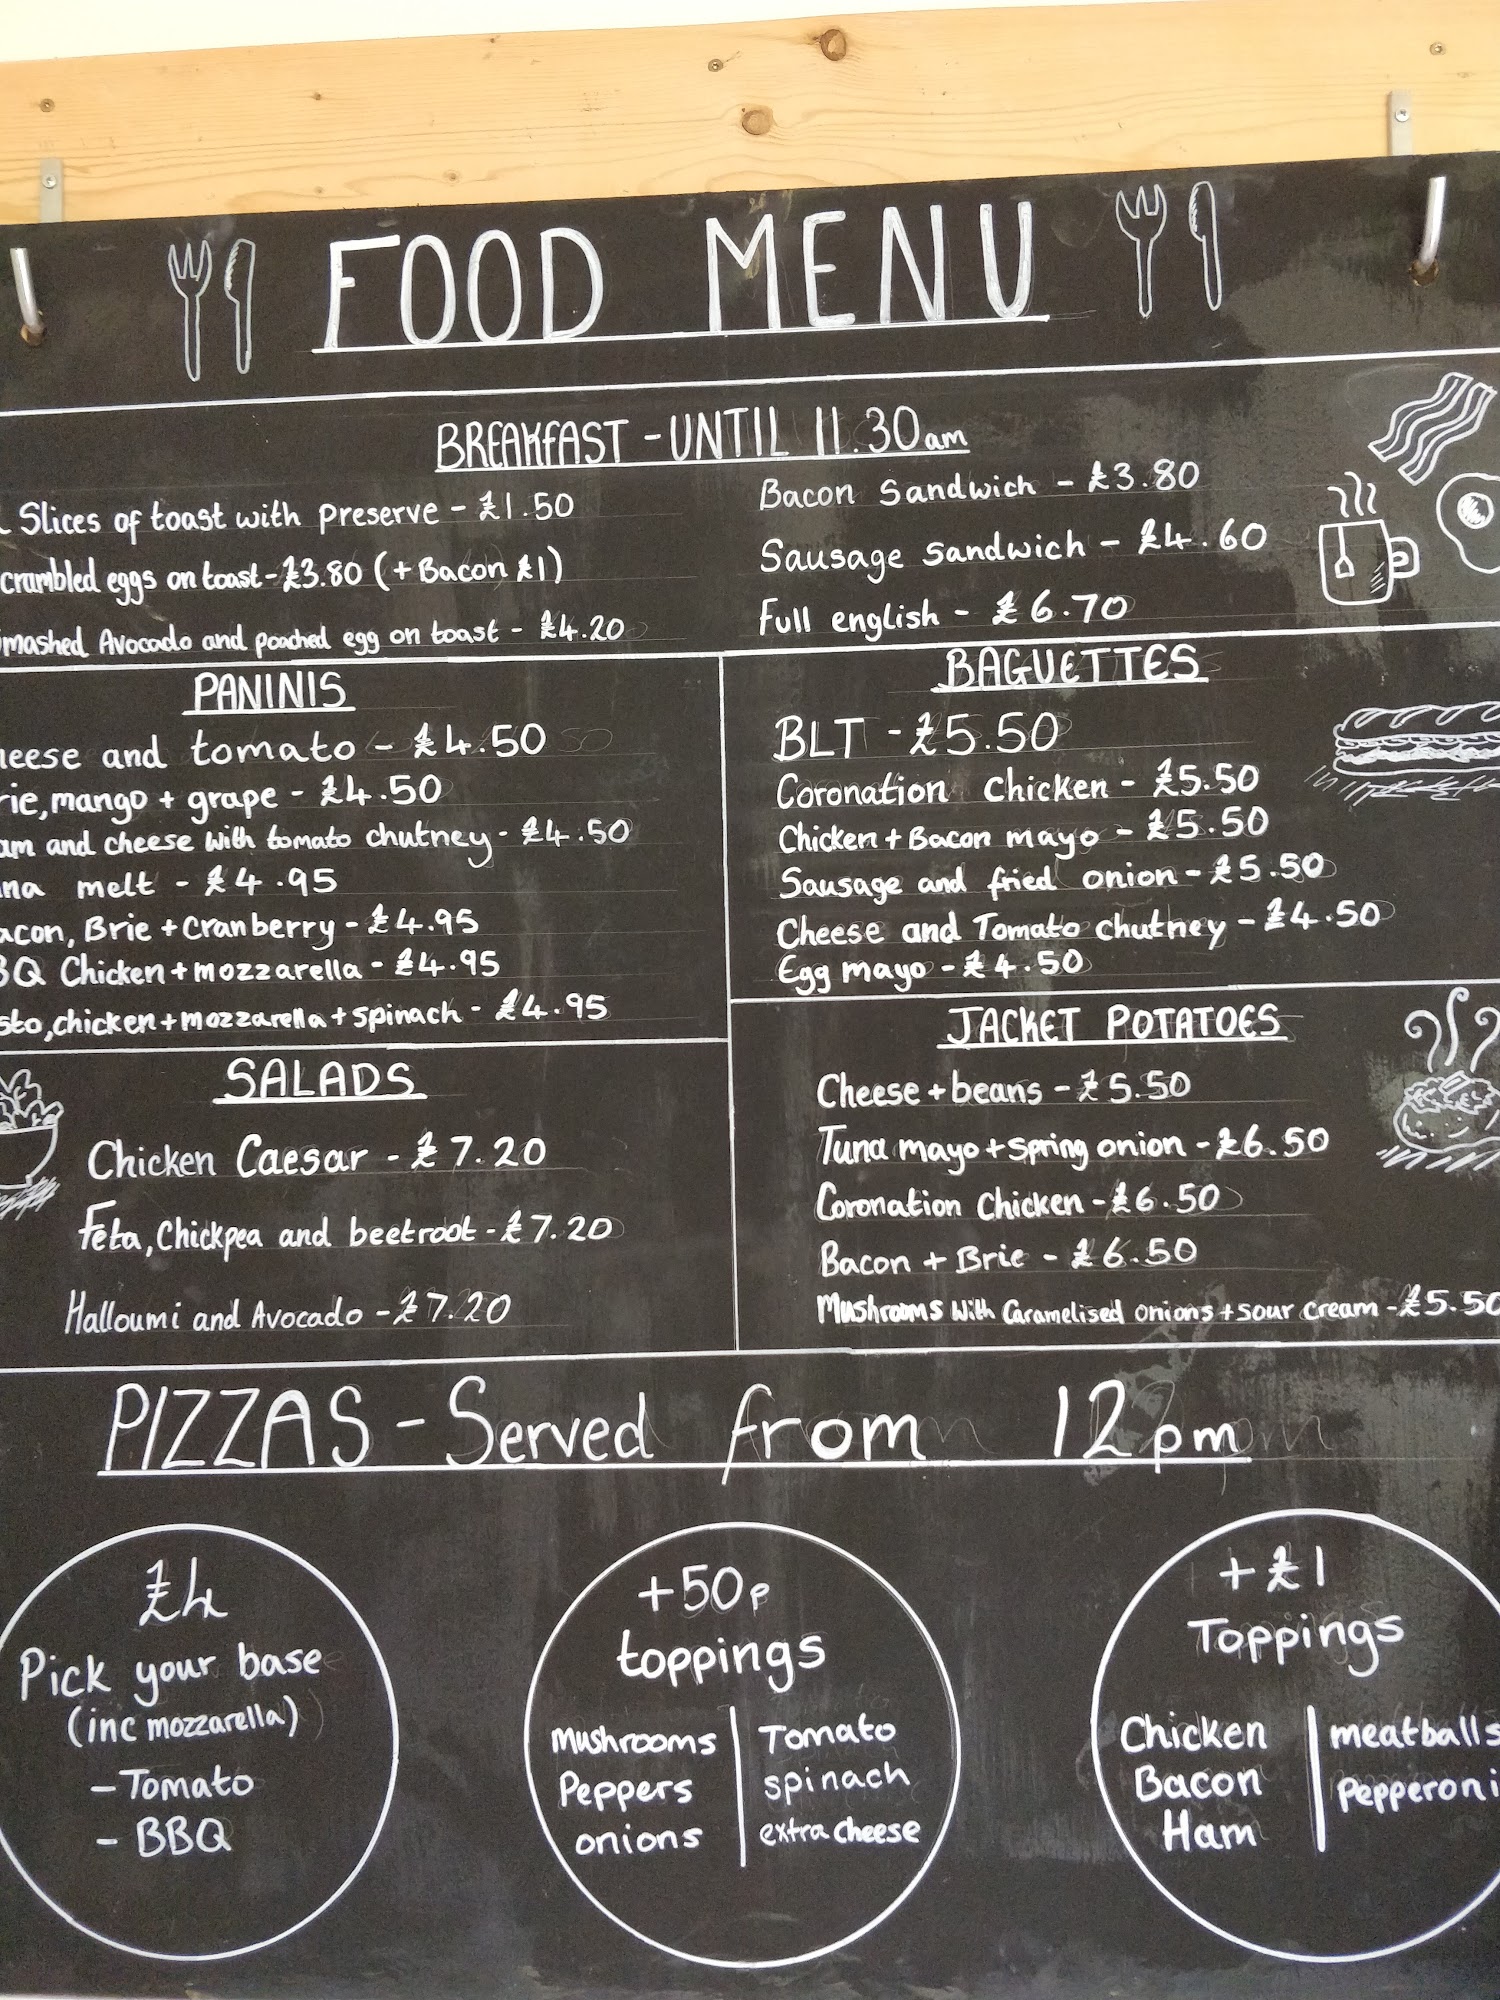 FOOD MENU
BREAKFAST - UNTIL 11.30am
Slices of toast with preserve - £1.50
crambled eggs on toast - £3.80 (+ Bacon £1)
mashed Avocado and poached egg on toast - £4.20
Bacon Sandwich - £3.80
Sausage Sandwich - £4.60
Full english - £6.70
PANINIS
heese and tomato - £4.50
rie, mango + grape - £4.50
am and cheese with tomato chutney - £4.50
na melt - £4.95
acon, Brie + Cranberry - £4.95
BQ Chicken + mozzarella - £4.95
sto, chicken + mozzarella + spinach - £4.95
BAGUETTES
BLT - £5.50
Coronation Chicken - £5.50
Chicken + Bacon mayo - £5.50
Sausage and fried onion - £5.50
Cheese and Tomato chutney - £4.50
Egg mayo - £4.50
SALADS
Chicken Caesar - £7.20
Feta, Chickpea and beetroot - £7.20
Halloumi and Avocado - £7.20
JACKET POTATOES
Cheese + beans - £5.50
Tuna mayo + Spring onion - £6.50
Coronation Chicken - £6.50
Bacon + Brie - £6.50
Mushrooms with Caramelised onions + sour cream - £5.50
PIZZAS - Served from 12pm
£4
Pick your base
(inc mozzarella)
- Tomato
- BBQ
+50p
toppings
Mushrooms
Peppers
onions
Tomato
spinach
extra cheese
+£1
Toppings
Chicken
Bacon
Ham
meatballs
Pepperoni